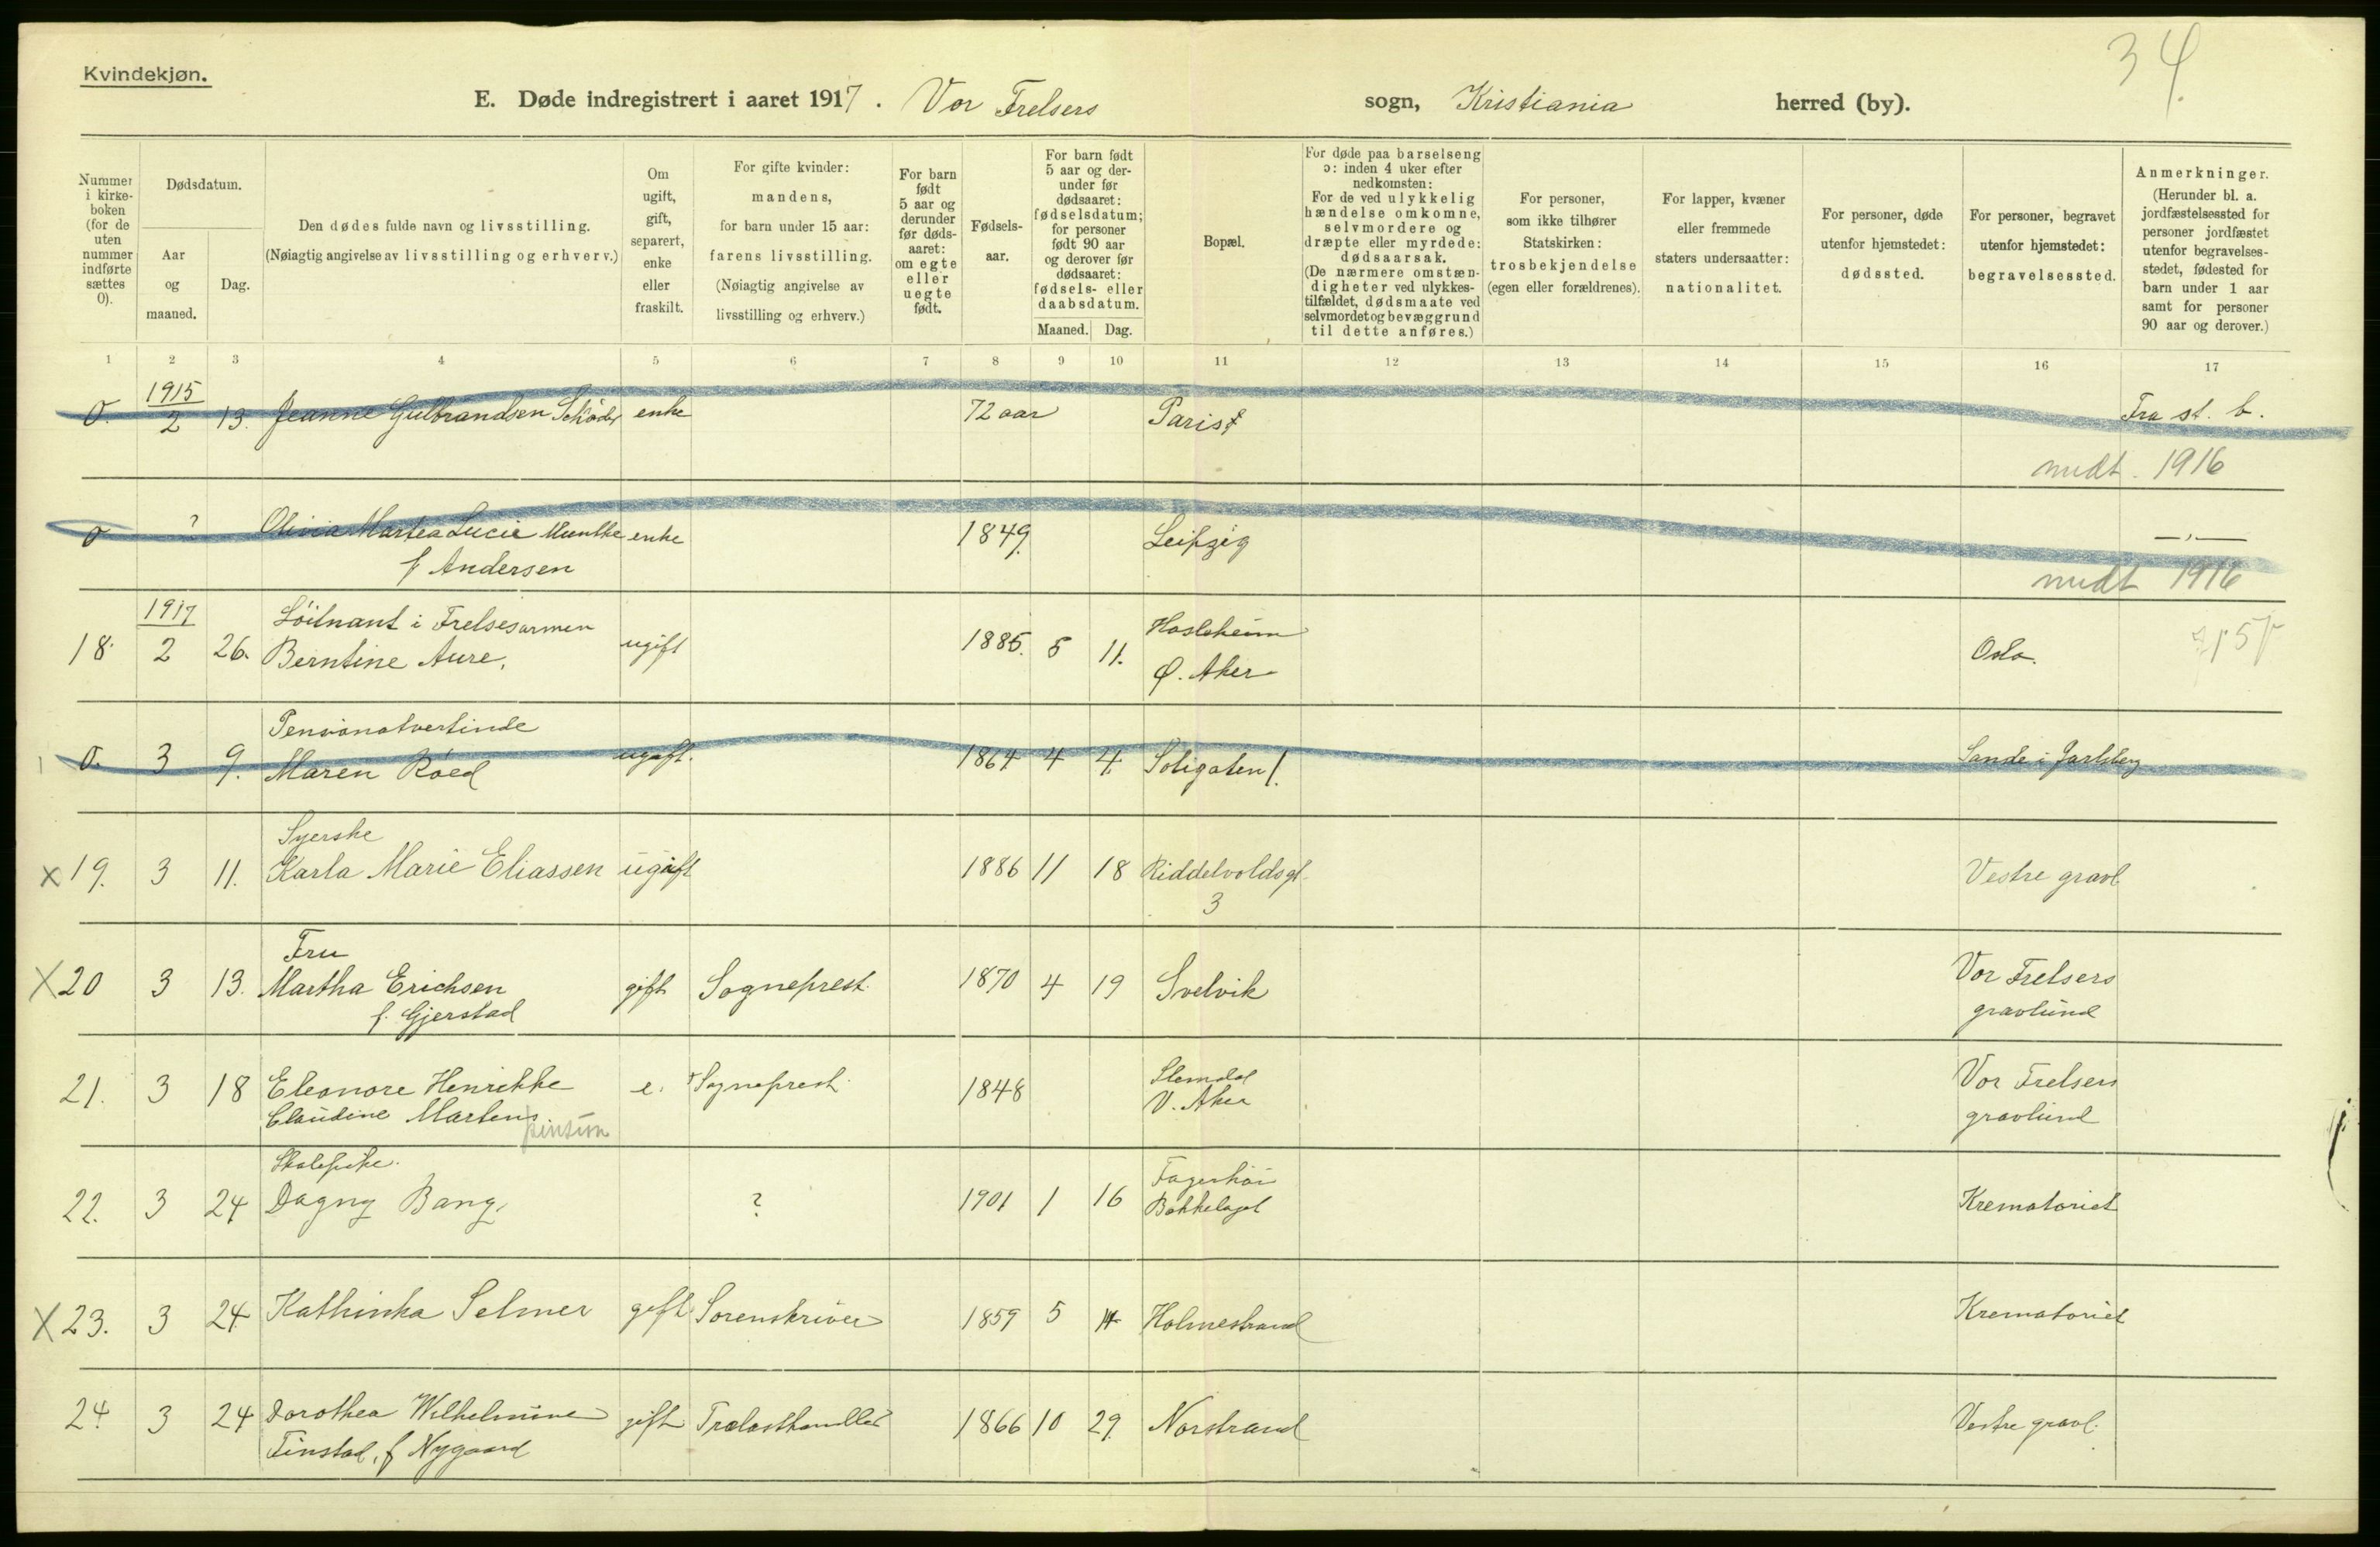 34
Kvindekjøn.
E. Døde indregistrert i aaret 1917. Vor Frelsers sogn, Kristiania herred (by).
Nummer i kirke-boken (for de uten nummer indførte sættes 0).
Dødsdatum.
Aar og maaned.
Dag.
Den dødes fulde navn og livsstilling.
(Nøiagtig angivelse av livsstilling og erhverv.)
Om ugift, gift, separert, enke eller fraskilt.
For gifte kvinder: mandens, for barn under 15 aar: farens livsstilling. (Nøiagtig angivelse av livsstilling og erhverv.)
For barn født 5 aar og derunder før døds-aaret: om egte eller uegte født.
Fødsels-aar.
For barn født 5 aar og der-under før dødsaaret: fødselsdatum; for personer født 90 aar og derover før dødsaaret: fødsels- eller daabsdatum.
Maaned. Dag.
Bopæl.
For døde paa barselseng ɔ: inden 4 uker efter nedkomsten: For de ved ulykkelig hændelse omkomne, selvmordere og dræpte eller myrdede: dødsaarsak. (De nærmere omstæn-digheter ved ulykkes-tilfældet, dødsmaate ved selvmordet og bevæggrund til dette anføres.)
For personer, som ikke tilhører Statskirken: trosbekjendelse (egen eller forældrenes).
For lapper, kvæner eller fremmede staters undersaatter: nationalitet.
For personer, døde utenfor hjemstedet: dødssted.
For personer, begravet utenfor hjemstedet: begravelsessted.
Anmerkninger. (Herunder bl. a. jordfæstelsessted for personer jordfæstet utenfor begravelses-stedet, fødested for barn under 1 aar samt for personer 90 aar og derover.)
1 2 3 4 5 6 7 8 9 10 11 12 13 14 15 16 17
1915
0. 2 13. Jeanne Gulbrandsen enke 72 aar Paris Fra st. b.
1916
0 ? Olivia Martea Lucie Munthe enke 1849. Leipzig —,,—
f Andersen
1916
1917 Løitnant i Frelsesarmen
18. 2 26. Berntine Aure, ugift 1885. 5 11. Hasleheim Ø. Aker Oslo.
Pensionatvertinde
0. 3 9. Maren Røed ugift. 1864 4 4. 1. Sande i Jarlsberg
Syerske
x 19. 3 11. Karla Marie Eliassen ugift 1886 11 18 Riddelvoldsgt. 3 Vestre gravl.
Fru
X 20 3 13. Martha Erichsen gift Sogneprest. 1870 4 19 Svelvik Vor Frelsers gravlund
f. Gjerstad
21. 3 18 Eleonore Henrikke e. Sogneprest. 1848 Slemdal V. Aker Vor Frelsers gravlund
Claudine Martens.
Skolepike.
22. 3 24 Dagny Bang. ? 1901 1 16 Fagerhøi Bækkelaget Krematoriet
X 23. 3 24. Kathinka Selmer gift Sorenskriver 1859 5 Holmestrand Krematoriet
24 3 24 Dorothea Wilhelmine gift Trælasthandler 1866 10 29. Norstrand Vestre gravl.
Finstad, f Nygaard